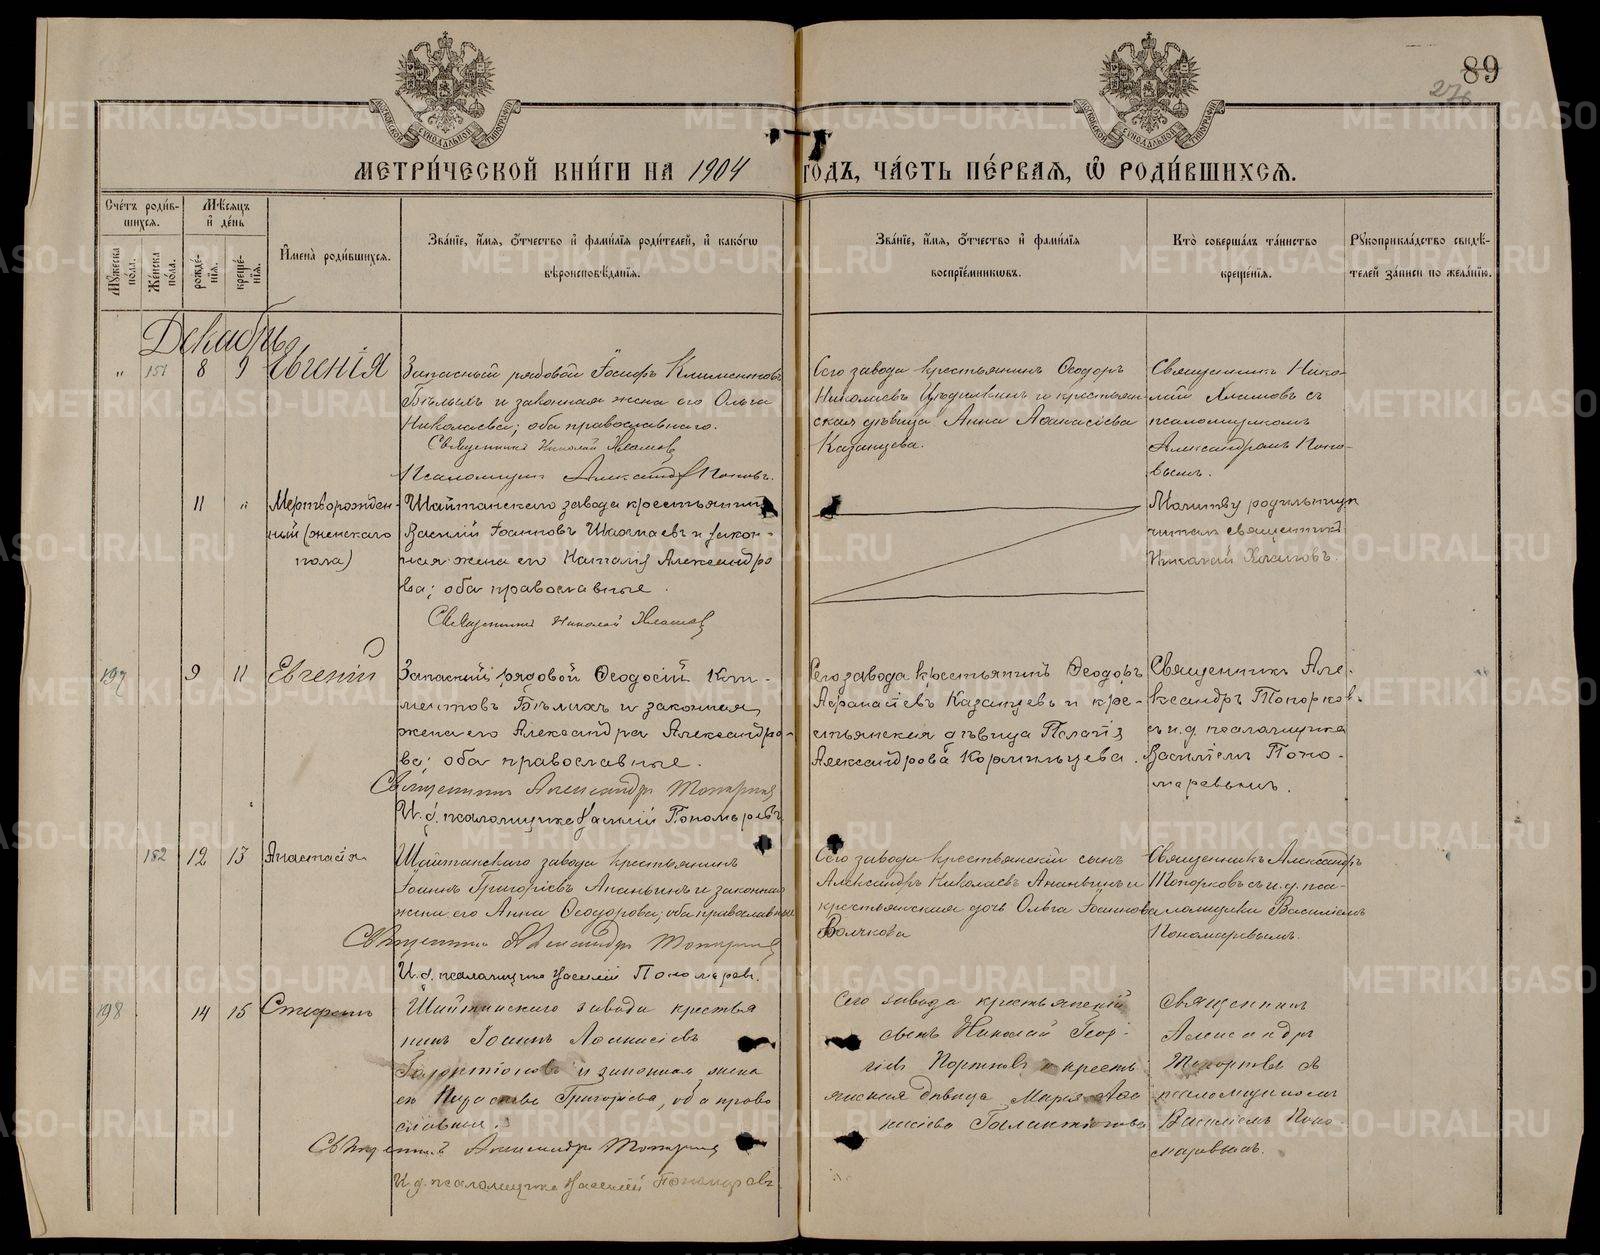 89
276
МЕТРИ́ЧЕСКОЙ КНИ́ГИ НА 1904 ГОДЪ, ЧА́СТЬ ПЕ́РВАЯ, Ѡ҆ РОДИ́ВШИХСЯ.
Сче́тъ роди́вшихся.
Мѣ́сяцъ и҆ де́нь
Мꙋ́жеска по́ла.
Же́нска по́ла.
рожде́нїѧ.
креще́нїѧ.
И҆мена̀ роди́вшихся.
Зва́нїе, и҆́мя, ѻ҆́тчество и҆ фами́лїя роди́телей, и҆ како́гѡ
вѣроисповѣ́данїя.
Зва́нїе, и҆́мя, ѻ҆́тчество и҆ фами́лїя
воспрїе́мникѡвъ.
Кто̀ соверша́лъ та́инство
креще́нїя.
Рꙋкоприкла́дство свидѣ́-
телей за́писи по жела́нїю.
Декабрь
" 151 8 9 Евгенія
Запасный рядовой Іосифъ Климентовъ
Бѣлыхъ и законная жена его Ольга
Николаева; оба православнаго.
Священникъ Николай Хламов
Псаломщик Александр Поповъ.
Сего завода крестьянинъ Ѳеодоръ
Николаевъ и крестьян-
ская дѣвица Анна Аѳанасіева
Казанцева.
Священникъ Нико-
лай Хламовъ съ
псаломщикомъ
Александромъ Попо-
вымъ.
11 " Мертворожден-
ный (женскаго
пола)
Шайтанскаго завода крестьянинъ
Василій Іоанновъ и закон-
ная жена его Наталія Александро
ва; оба православные.
Священникъ Николай Хламов
Молитву родильницѣ
читалъ священникъ
Николай Хламовъ.
197 9 11 Евгеній
Запасный рядовой Ѳеодосій Кли-
ментовъ Бѣлыхъ и законная
жена его Александра Александро-
ва; оба православные.
Священникъ Александръ Топорков
И.д. псаломщика Василій Пономаревъ
Сего завода крестьянинъ Ѳеодоръ
Аѳанасіевъ Казанцевъ и кре-
стьянская дѣвица Пелагія
Александрова Кормильцева.
Священникъ Але-
ксандръ Топорков
съ и.д. псаломщика
Василіемъ Поно-
маревымъ.
152 12 13 Анастасія
Шайтанскаго завода крестьянинъ
Іоаннъ Григоріевъ Ананьинъ и законная
жена его Анна Ѳеодорова; оба православные
Священникъ Александръ Топорков
И.д. псаломщика Василій Пономарев.
Сего завода крестьянскій сынъ
Александръ Николаевъ Ананьинъ и
крестьянская дочь Ольга Іоаннова
Волкова
Священникъ Александръ
Топорковъ съ и.д. пса-
ломщика Василіемъ
Пономаревымъ.
198 14 15 Стефанъ
Шайтанскаго завода крестья
нинъ Іоаннъ Аѳанасіевъ
Галактіоновъ и законная жена
его Параскева Григорьева, оба право
славные.
Священникъ Александръ Топорков
И.д. псаломщика Василій Пономаревъ
Сего завода крестьянскій
сынъ Николай Геор-
гіев Портновъ и кресть
янская дѣвица Марія Аѳа
насіева Галактіонова
Священникъ
Александръ
Топорковъ съ
псаломщикомъ
Василіемъ Поно-
маревымъ.
METRIKI.GASO-URAL.RU